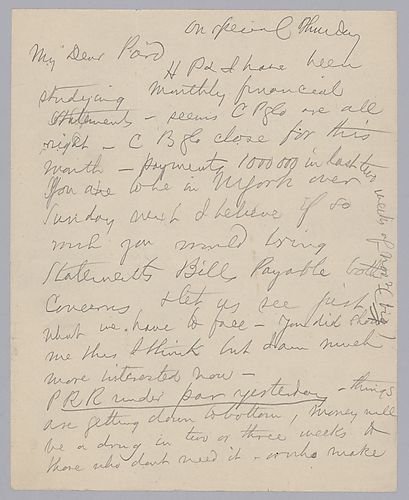 on special Thursday
My Dear Pard
H P & I have been
studying monthly financial
statements - seems C P & Co are all
right - C B & Co close for this
month - payments 100000 in last ten
You are to be in N York over
Sunday next I believe if so
wish you would bring
statements Bills Payable both
Concerns & let us see just
what we have to face - You did show
me this I think but I am much
more interested now -
P R R under par yesterday - things
are getting down to bottom, money will
be a drug in two or three weeks to
those who dont need it - or who make
weeks of